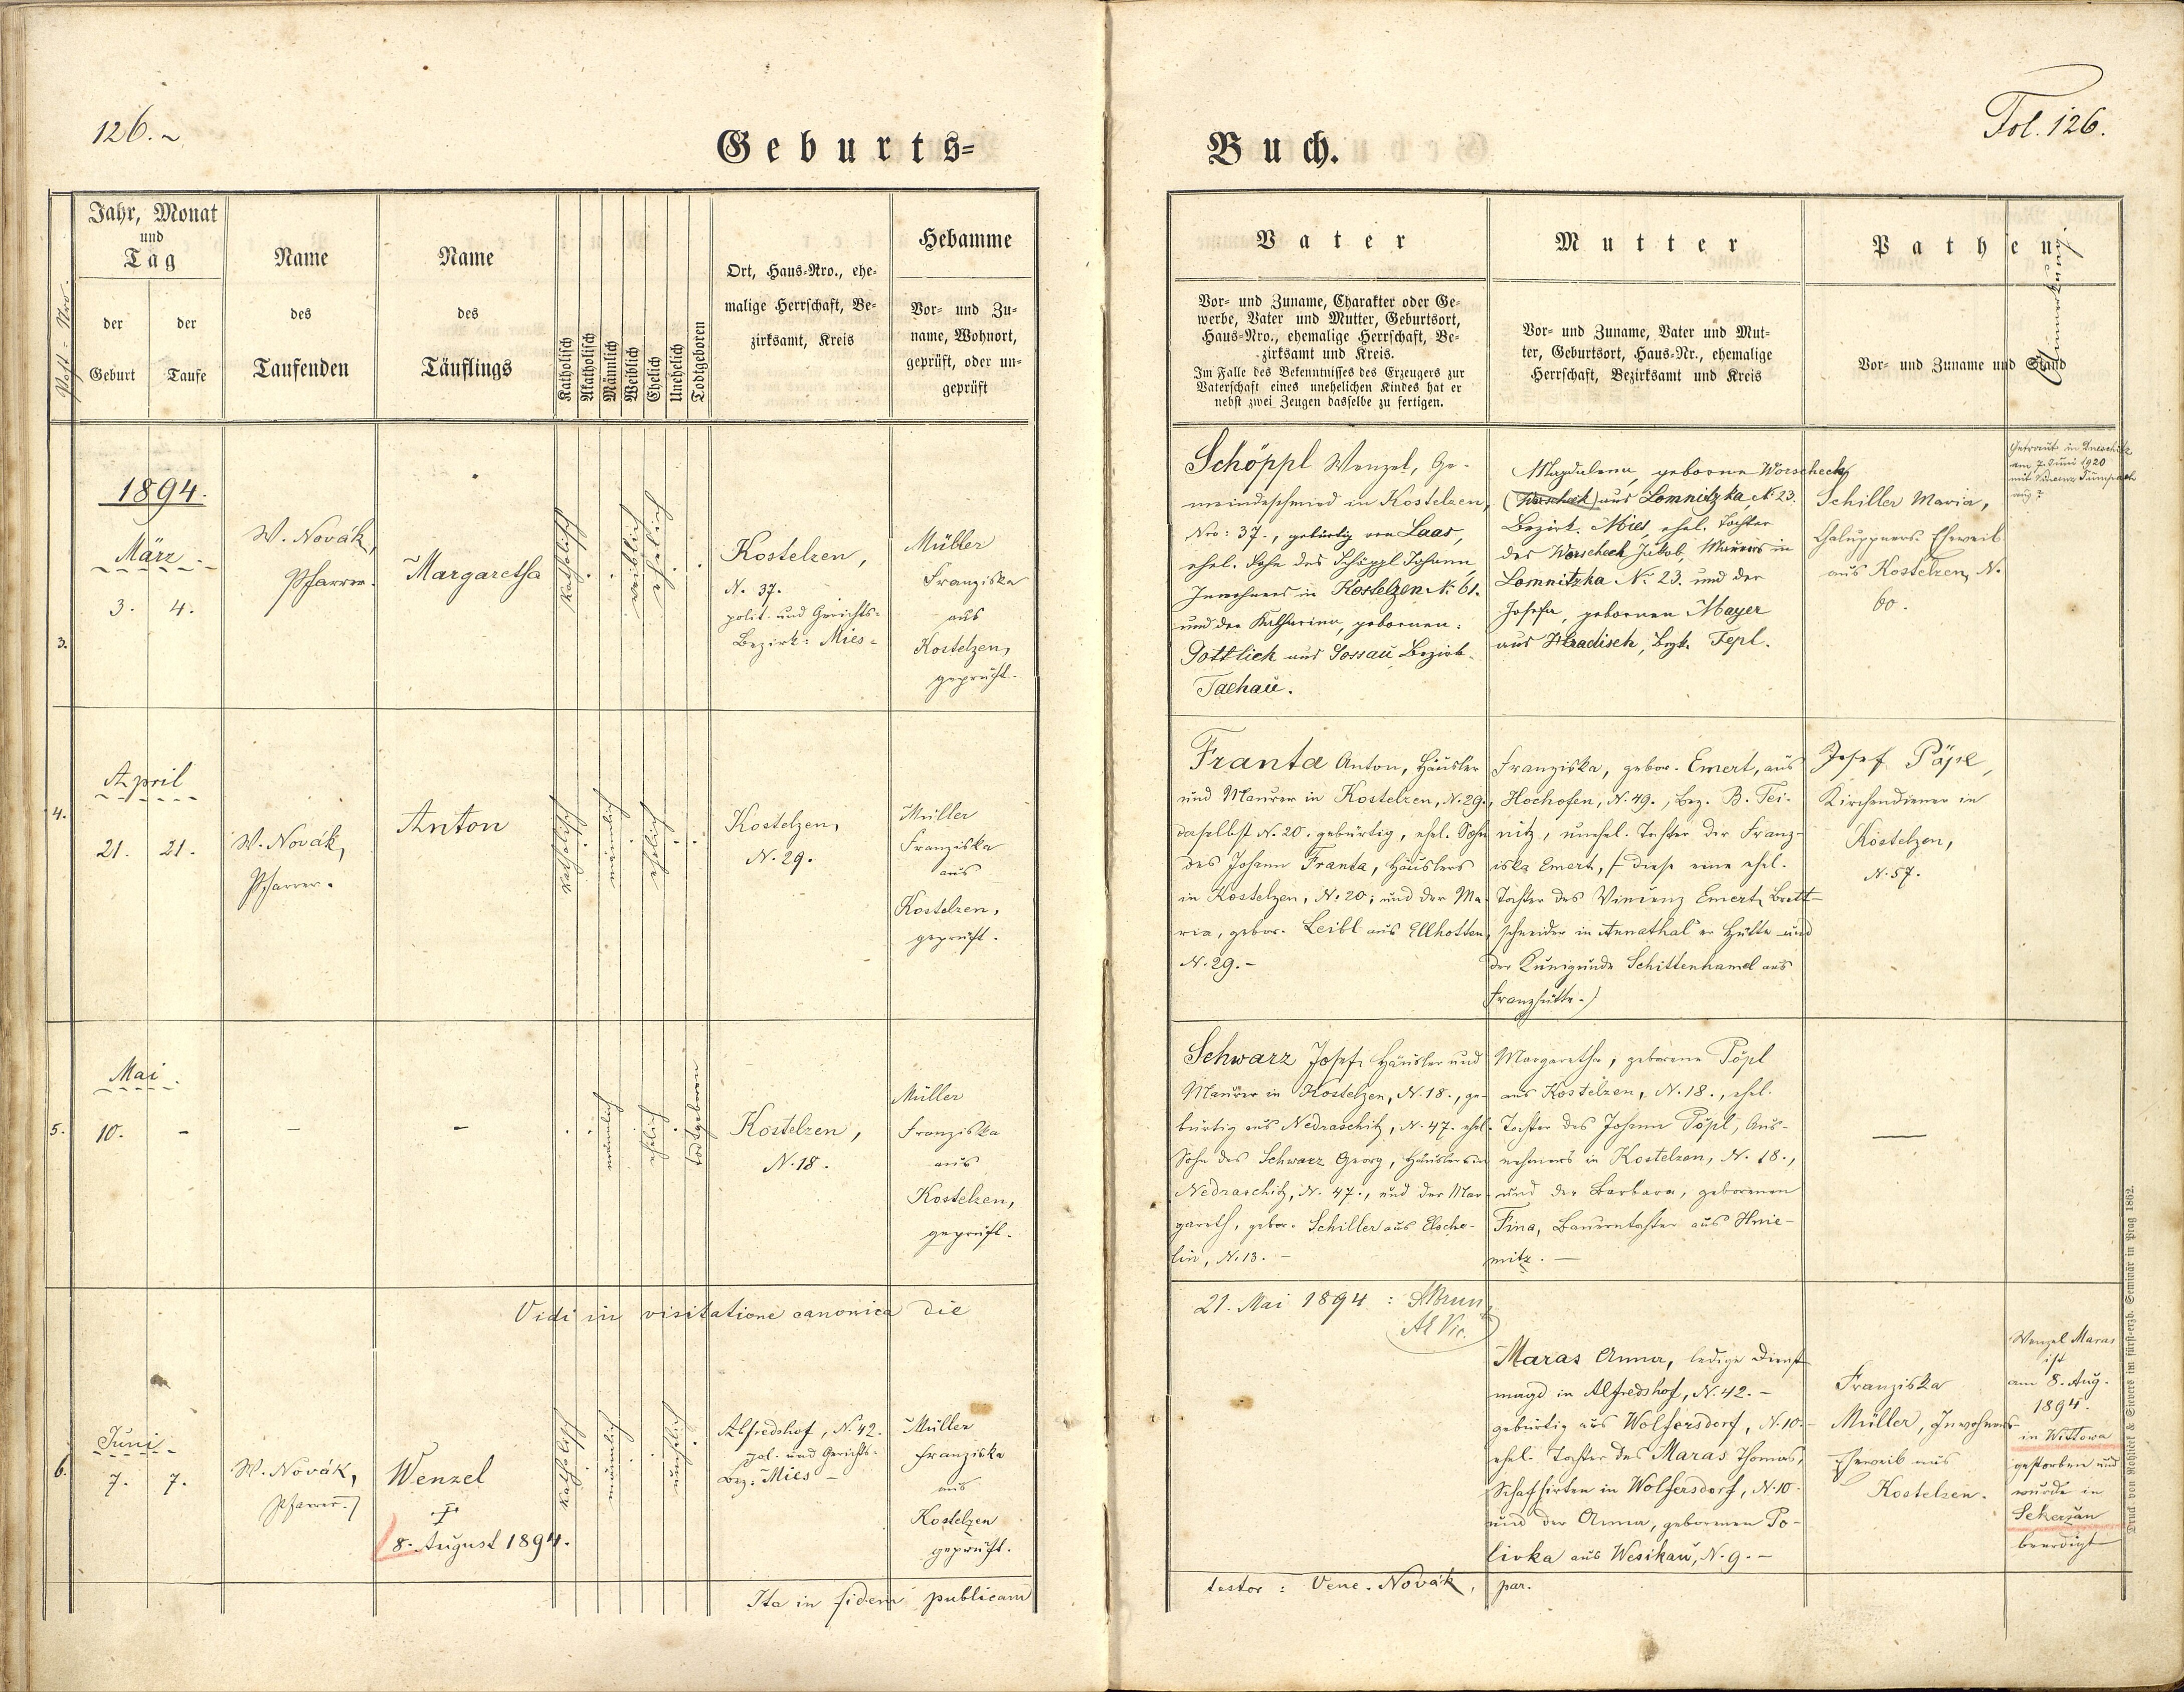 126.
Geburts-
Jahr, Monat
und
Tag
der
Geburt
der
Taufe
Post-Nro.
Name
des
Taufenden
Name
des
Täuflings
Katholisch
Akatholisch
Männlich
Weiblich
Ehelich
Unehelich
Todtgeboren
Ort, Haus-Nro., ehe-
malige Herrschaft, Be-
zirksamt, Kreis
Hebamme
Vor- und Zu-
name, Wohnort,
geprüft, oder un-
geprüft
3.
1894.
März
3. 4.
W. Novák,
Pfarrer.
Margaretha
katholisch
weiblich
ehelich
Kostelzen,
N. 37.
polit. und Gerichts-
Bezirk: Mies-
Müller
Franziska
aus
Kostelzen,
geprüft.
4.
April
21. 21.
W. Novák,
Pfarrer.
Anton
katholisch
männlich
ehelich
Kostelzen,
N. 29.
Müller
Franziska
aus
Kostelzen,
geprüft.
5.
Mai
10. - - -
männlich
ehelich
todtgeboren
Kostelzen,
N. 18.
Müller
Franziska
aus
Kostelzen,
geprüft.
Vidi in visitatione canonica die
6.
Juni
7. 7.
W. Novák,
Pfarrer.
Wenzel
8. August 1894.
katholisch
männlich
unehelich
Alfredshof, N. 42.
pol. und Gerichts-
Bez: Mies -
Müller
Franziska
aus
Kostelzen
geprüft.
Ita in fidem publicam
Buch.
Fol. 126.
Vater
Vor- und Zuname, Charakter oder Ge-
werbe, Vater und Mutter, Geburtsort,
Haus-Nro., ehemalige Herrschaft, Be-
zirksamt und Kreis.
Im Falle des Bekenntnisses des Erzeugers zur
Vaterschaft eines unehelichen Kindes hat er
nebst zwei Zeugen dasselbe zu fertigen.
Mutter
Vor- und Zuname, Vater und Mut-
ter, Geburtsort, Haus-Nr., ehemalige
Herrschaft, Bezirksamt und Kreis
Pathen
Vor- und Zuname und Stand
Anmerkung
Schöppl Wenzel, Ge-
meindeschmied in Kostelzen,
Nro: 37., gebürtig von Laas,
ehel. Sohn des Schöppl Johann
Inwohners in Kostelzen N. 61.
und der Katharina, gebornen
Gottlick aus Gossau Bezirk
Tachau.
Magdalena, geborne Worscheck,
aus Lomnitzka, N. 23.
Bezirk Mies, ehel. Tochter
des Worscheck Jakob, Maurers in
Lomnitzka No. 23. und der
Josefa, gebornen Mayer
aus Hradisch, Bezk. Tepl.
Schiller Maria,
Chaluppners Eheweib
aus Kostelzen, N.
60.
Getraut in
am 7. Juni 1920
mit
Franta Anton, Häusler
und Maurer in Kostelzen, N. 29.,
daselbst N. 20. gebürtig, ehel. Sohn
des Johann Franta, Häuslers
in Kostelzen, N. 20; und der Ma-
ria, gebor. Leibl aus Ellhotten
N. 29. -
Franziska, gebor. Emert, aus
Hochofen, N. 49., Bez. B. Tei-
nitz, unehel. Tochter der Franz-
iska Emert, (diese eine ehel.
Tochter des Vincenz Emert, Brett-
schneider in Annathal'er Hütte und
der Kunigunde Schittenhamel aus
Franzhütte.)
Josef Pöpl,
Kirchendiener in
Kostelzen,
N. 57.
Schwarz Josef, Häusler und
Maurer in Kostelzen, N. 18., ge-
bürtig aus Nedraschitz, N. 47. ehel.
Sohn des Schwarz Georg, Häuslers in
Nedraschitz, N. 47., und der Mar-
gareth, gebor. Schiller aus Elsche-
lin, N. 13. -
Margaretha, geborene Pöpl
aus Kostelzen, N. 18., ehel.
Tochter des Johann Pöpl, Aus-
nehmers in Kostelzen, N. 18.,
und der Barbara, geborenen
Fina, Bauerntochter aus Hnie-
mitz. -
21. Mai 1894 :
Maras Anna, ledige Dienst-
magd in Alfredshof, N. 42. -
gebürtig aus Wolfersdorf, N. 10.
ehel. Tochter des Maras Thomas,
Schafhirten in Wolfersdorf, N. 10
und der Anna, gebornen Po-
livka aus Wesikau, N. 9. -
Franziska
Müller, Inwohners
Eheweib aus
Kostelzen.
Wenzel Maras
ist
am 8. Aug.
1894.
in Wittowa
gestorben und
wurde in
Sekerzan
beerdigt
testor : Venc. Novák, par.
Druck von Rohliček & Sievers im fürst-erzb. Seminär in Prag 1862.